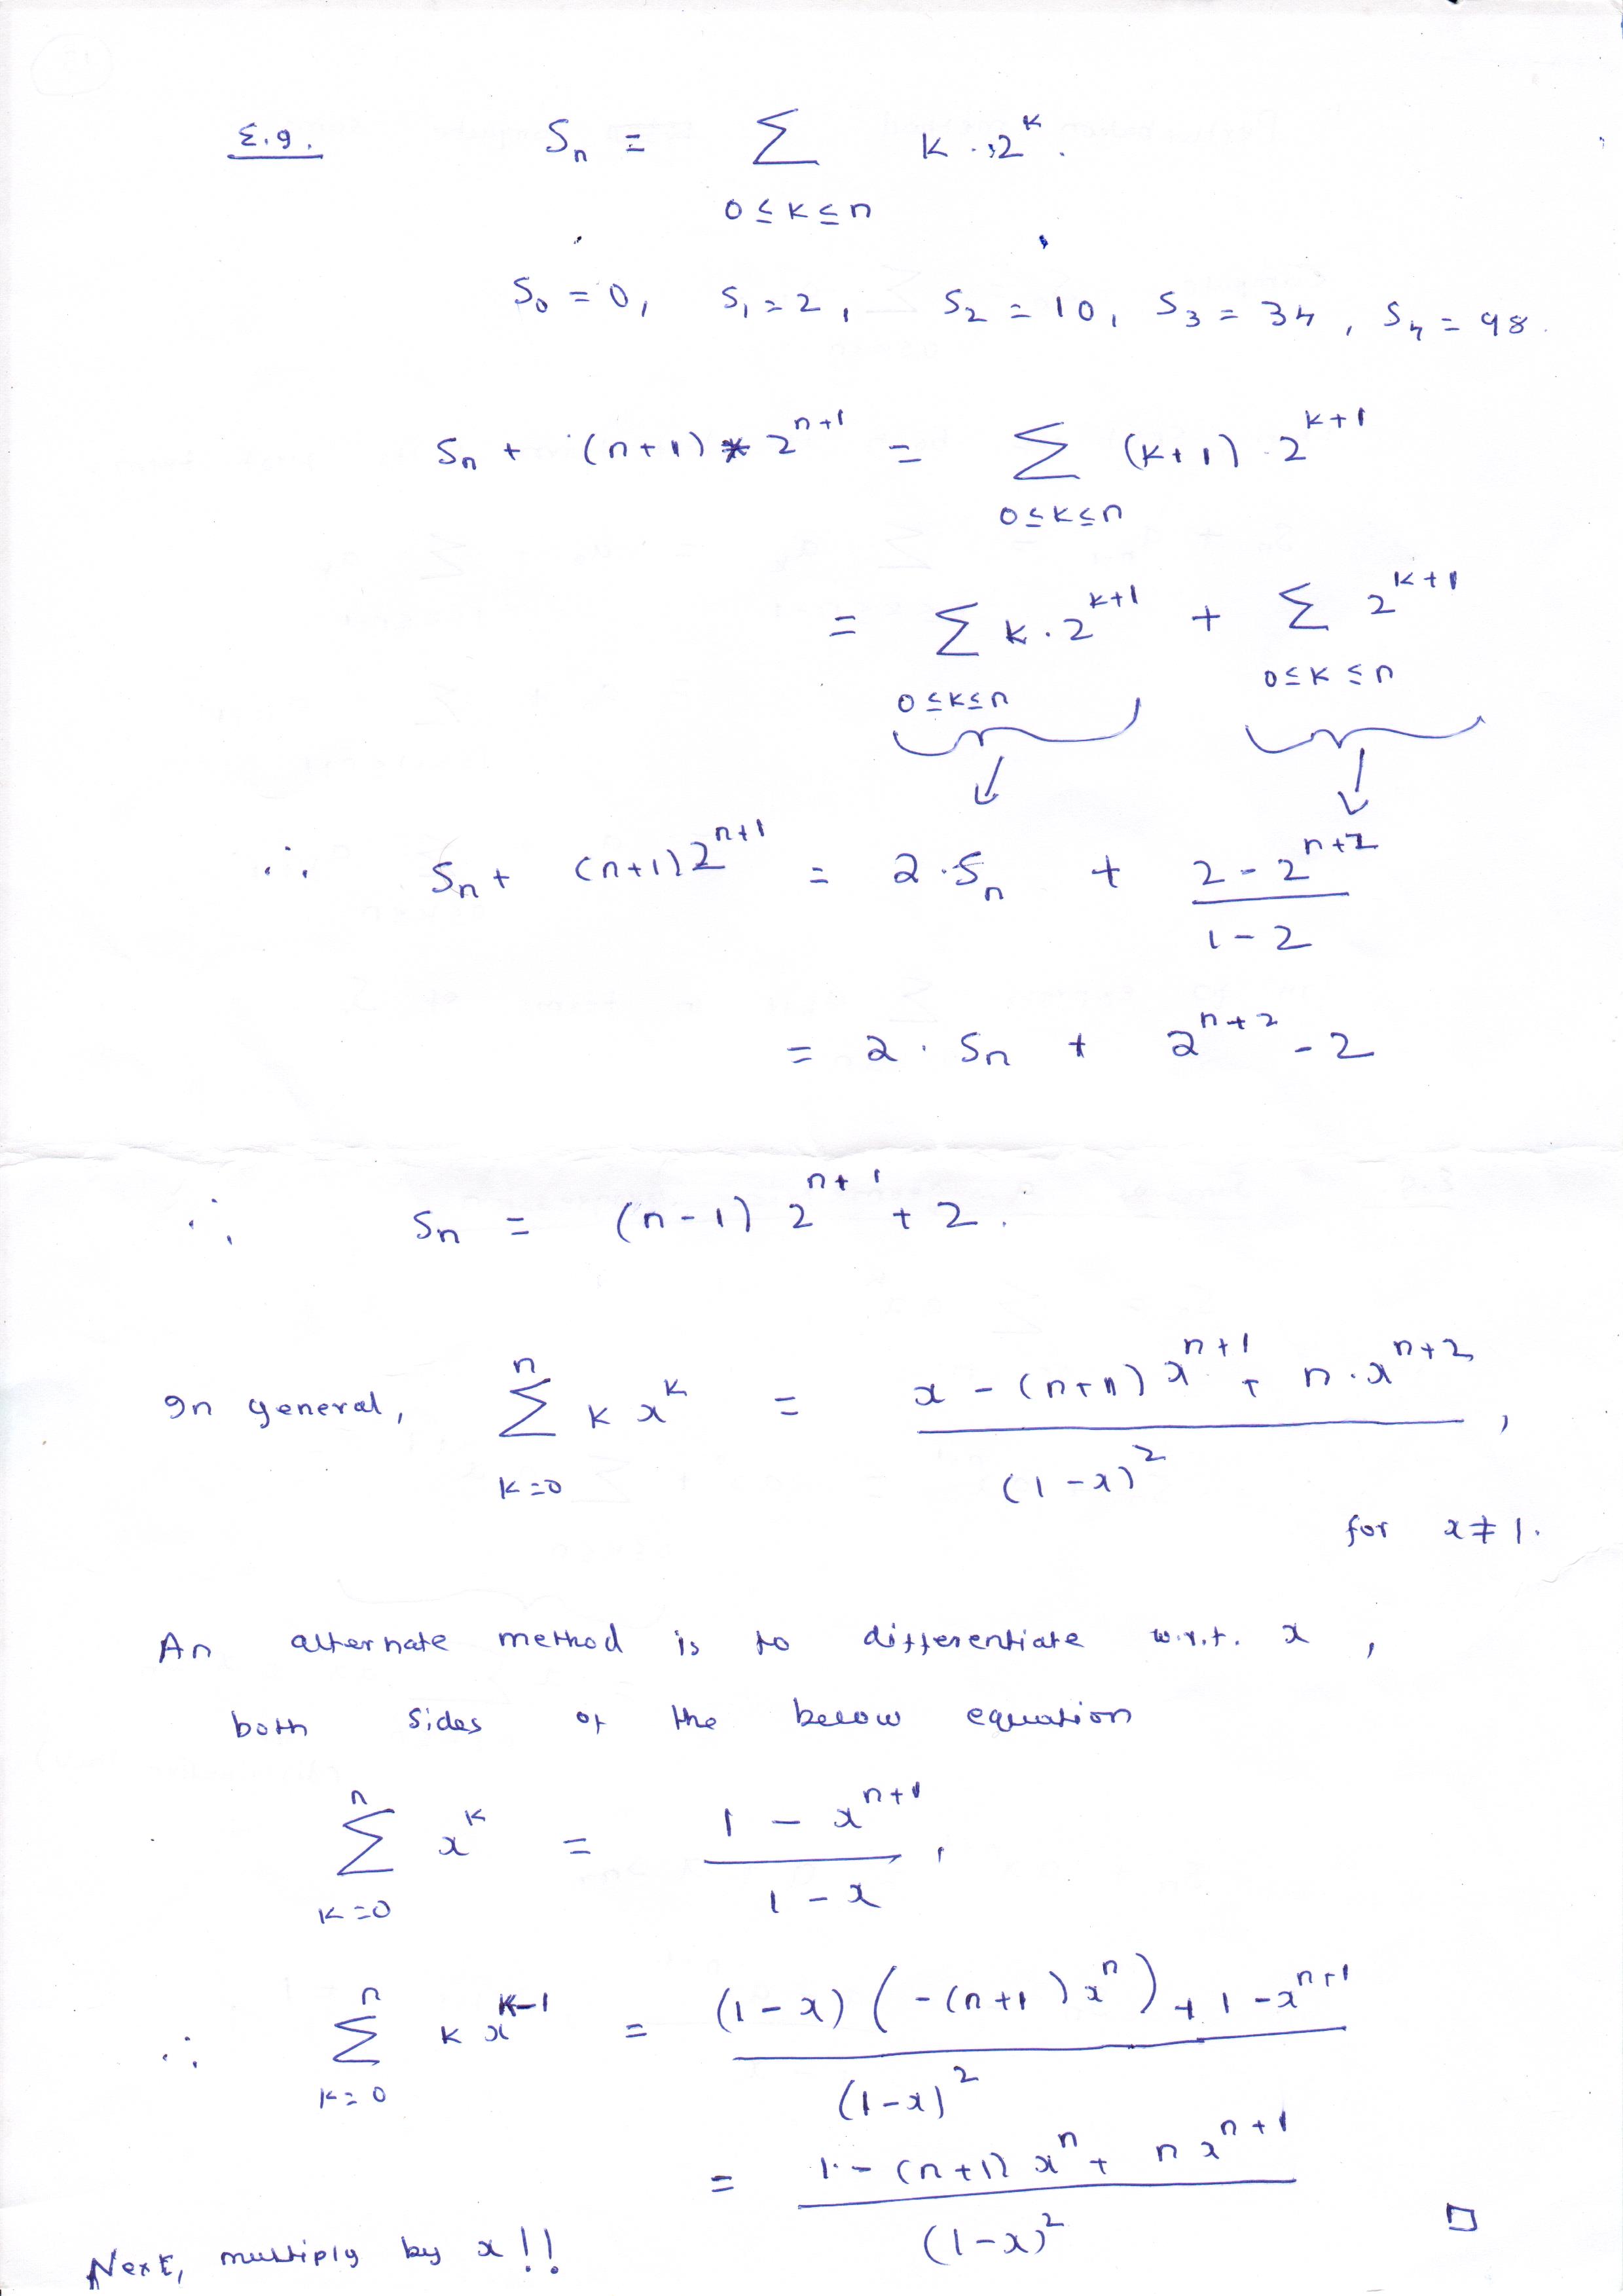 E.g. S_n = Σ_{0≤k≤n} k·2^k.
S_0 = 0, S_1 = 2, S_2 = 10, S_3 = 34, S_4 = 98.
S_n + (n+1) * 2^{n+1} = Σ_{0≤k≤n} (k+1) 2^{k+1}
= Σ_{0≤k≤n} k·2^{k+1} + Σ_{0≤k≤n} 2^{k+1}
∴ S_n + (n+1) 2^{n+1} = 2·S_n + (2 - 2^{n+2})/(1-2)
= 2·S_n + 2^{n+2} - 2
∴ S_n = (n-1) 2^{n+1} + 2.
In general, Σ_{k=0}^{n} k x^k = (x - (n+1) x^{n+1} + n·x^{n+2})/(1-x)^2,
for x ≠ 1.
An alternate method is to differentiate w.r.t. x,
both sides of the below equation
Σ_{k=0}^{n} x^k = (1 - x^{n+1})/(1-x),
∴ Σ_{k=0}^{n} k x^{k-1} = ((1-x)(-(n+1)x^n) + 1 - x^{n+1})/(1-x)^2
= (1 - (n+1) x^n + n x^{n+1})/(1-x)^2 □
Next, multiply by x!!